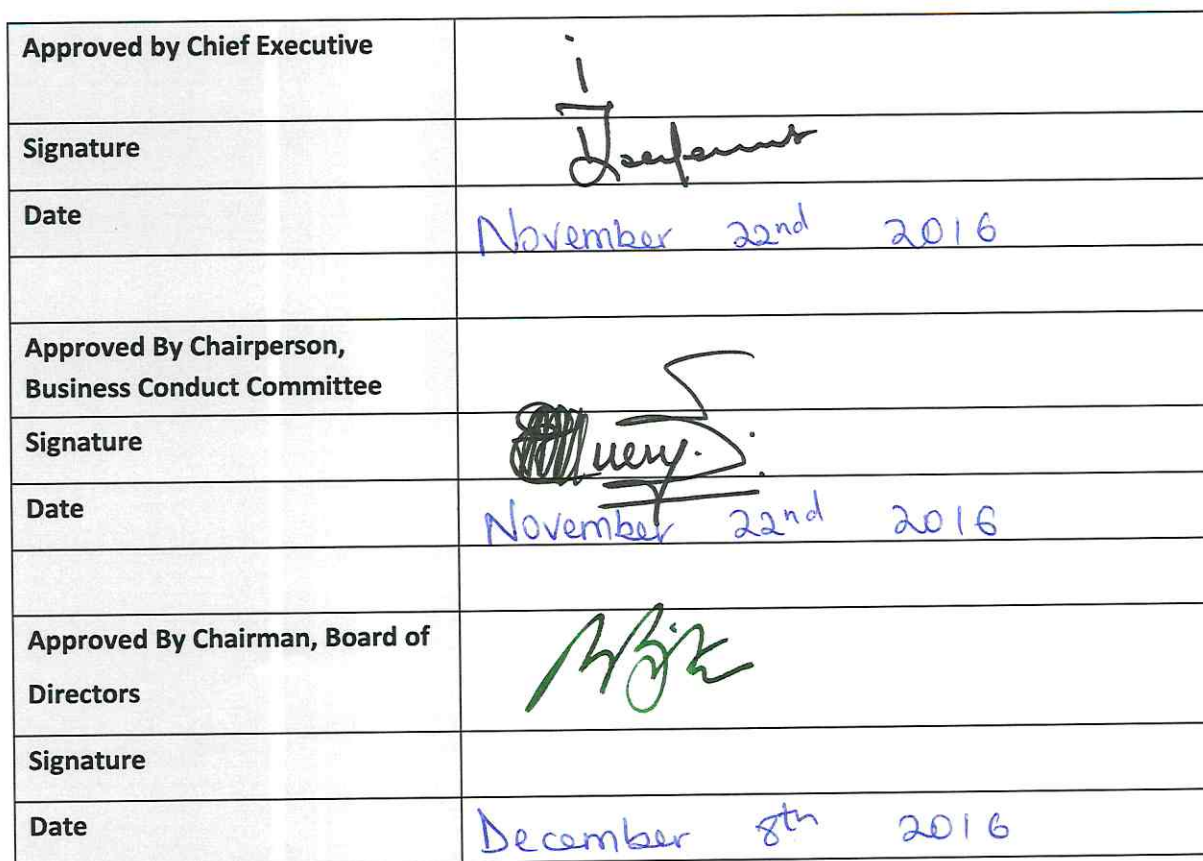 Approved by Chief Executive
Signature
Date November 22nd 2016
Approved By Chairperson,
Business Conduct Committee
Signature
Date November 22nd 2016
Approved By Chairman, Board of
Directors
Signature
Date December 8th 2016